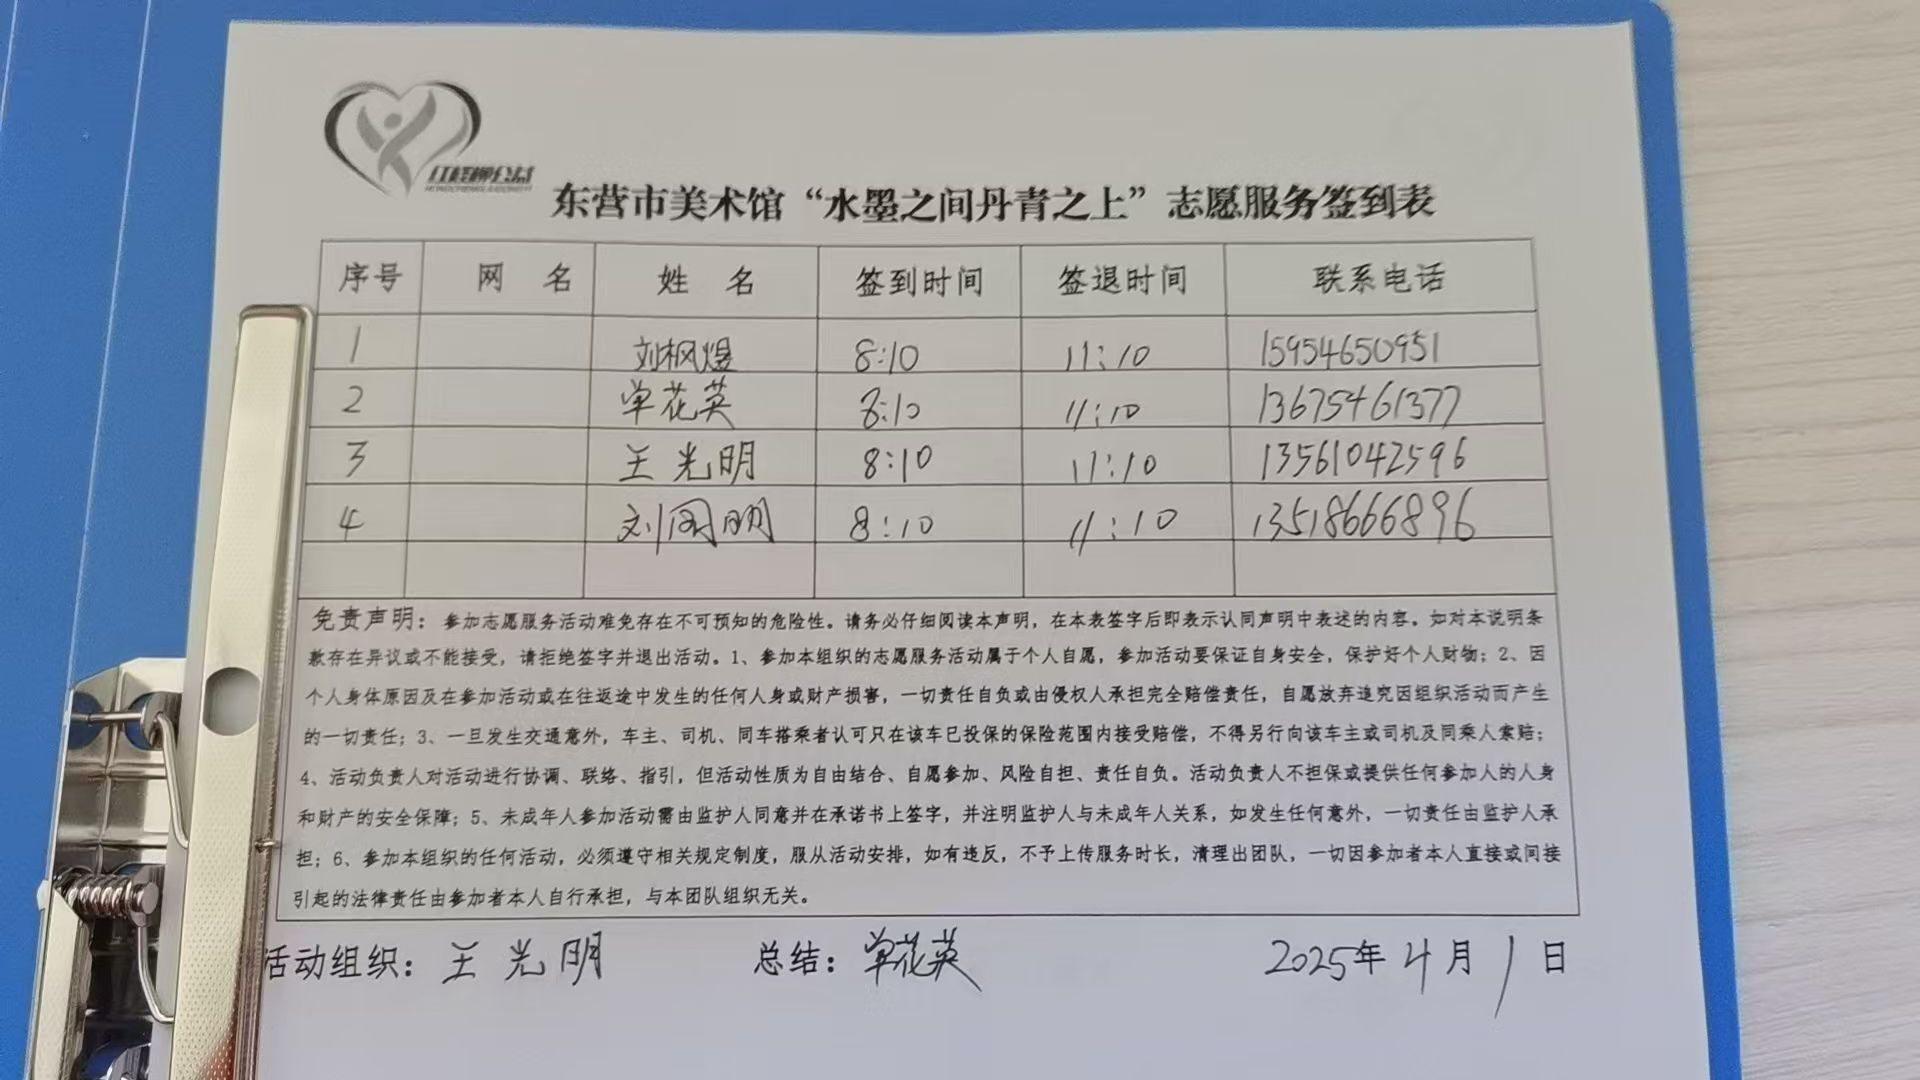 红柽柳公益
HONGCHENGLIUGONGYI
东营市美术馆“水墨之间丹青之上”志愿服务签到表
序号 网 名 姓 名 签到时间 签退时间 联系电话
1 刘枫煜 8:10 11:10 15954650951
2 单花英 8:10 11:10 13675461377
3 王光明 8:10 11:10 13561042596
4 刘国明 8:10 11:10 13518666896
免责声明：参加志愿服务活动难免存在不可预知的危险性。请务必仔细阅读本声明，在本表签字后即表示认同声明中表述的内容。如对本说明条
款存在异议或不能接受，请拒绝签字并退出活动。1、参加本组织的志愿服务活动属于个人自愿，参加活动要保证自身安全，保护好个人财物；2、因
个人身体原因及在参加活动或在往返途中发生的任何人身或财产损害，一切责任自负或由侵权人承担完全赔偿责任，自愿放弃追究因组织活动而产生
的一切责任；3、一旦发生交通意外，车主、司机、同车搭乘者认可只在该车已投保的保险范围内接受赔偿，不得另行向该车主或司机及同乘人索赔；
4、活动负责人对活动进行协调、联络、指引，但活动性质为自由结合、自愿参加、风险自担、责任自负。活动负责人不担保或提供任何参加人的人身
和财产的安全保障；5、未成年人参加活动需由监护人同意并在承诺书上签字，并注明监护人与未成年人关系，如发生任何意外，一切责任由监护人承
担；6、参加本组织的任何活动，必须遵守相关规定制度，服从活动安排，如有违反，不予上传服务时长，清理出团队，一切因参加者本人直接或间接
引起的法律责任由参加者本人自行承担，与本团队组织无关。
活动组织：王光明 总结：单花英 2025年4月1日